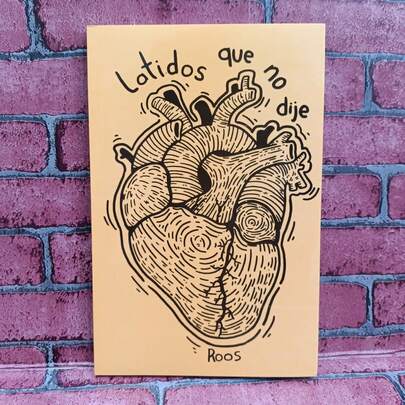 Latidos que no dije
Roos